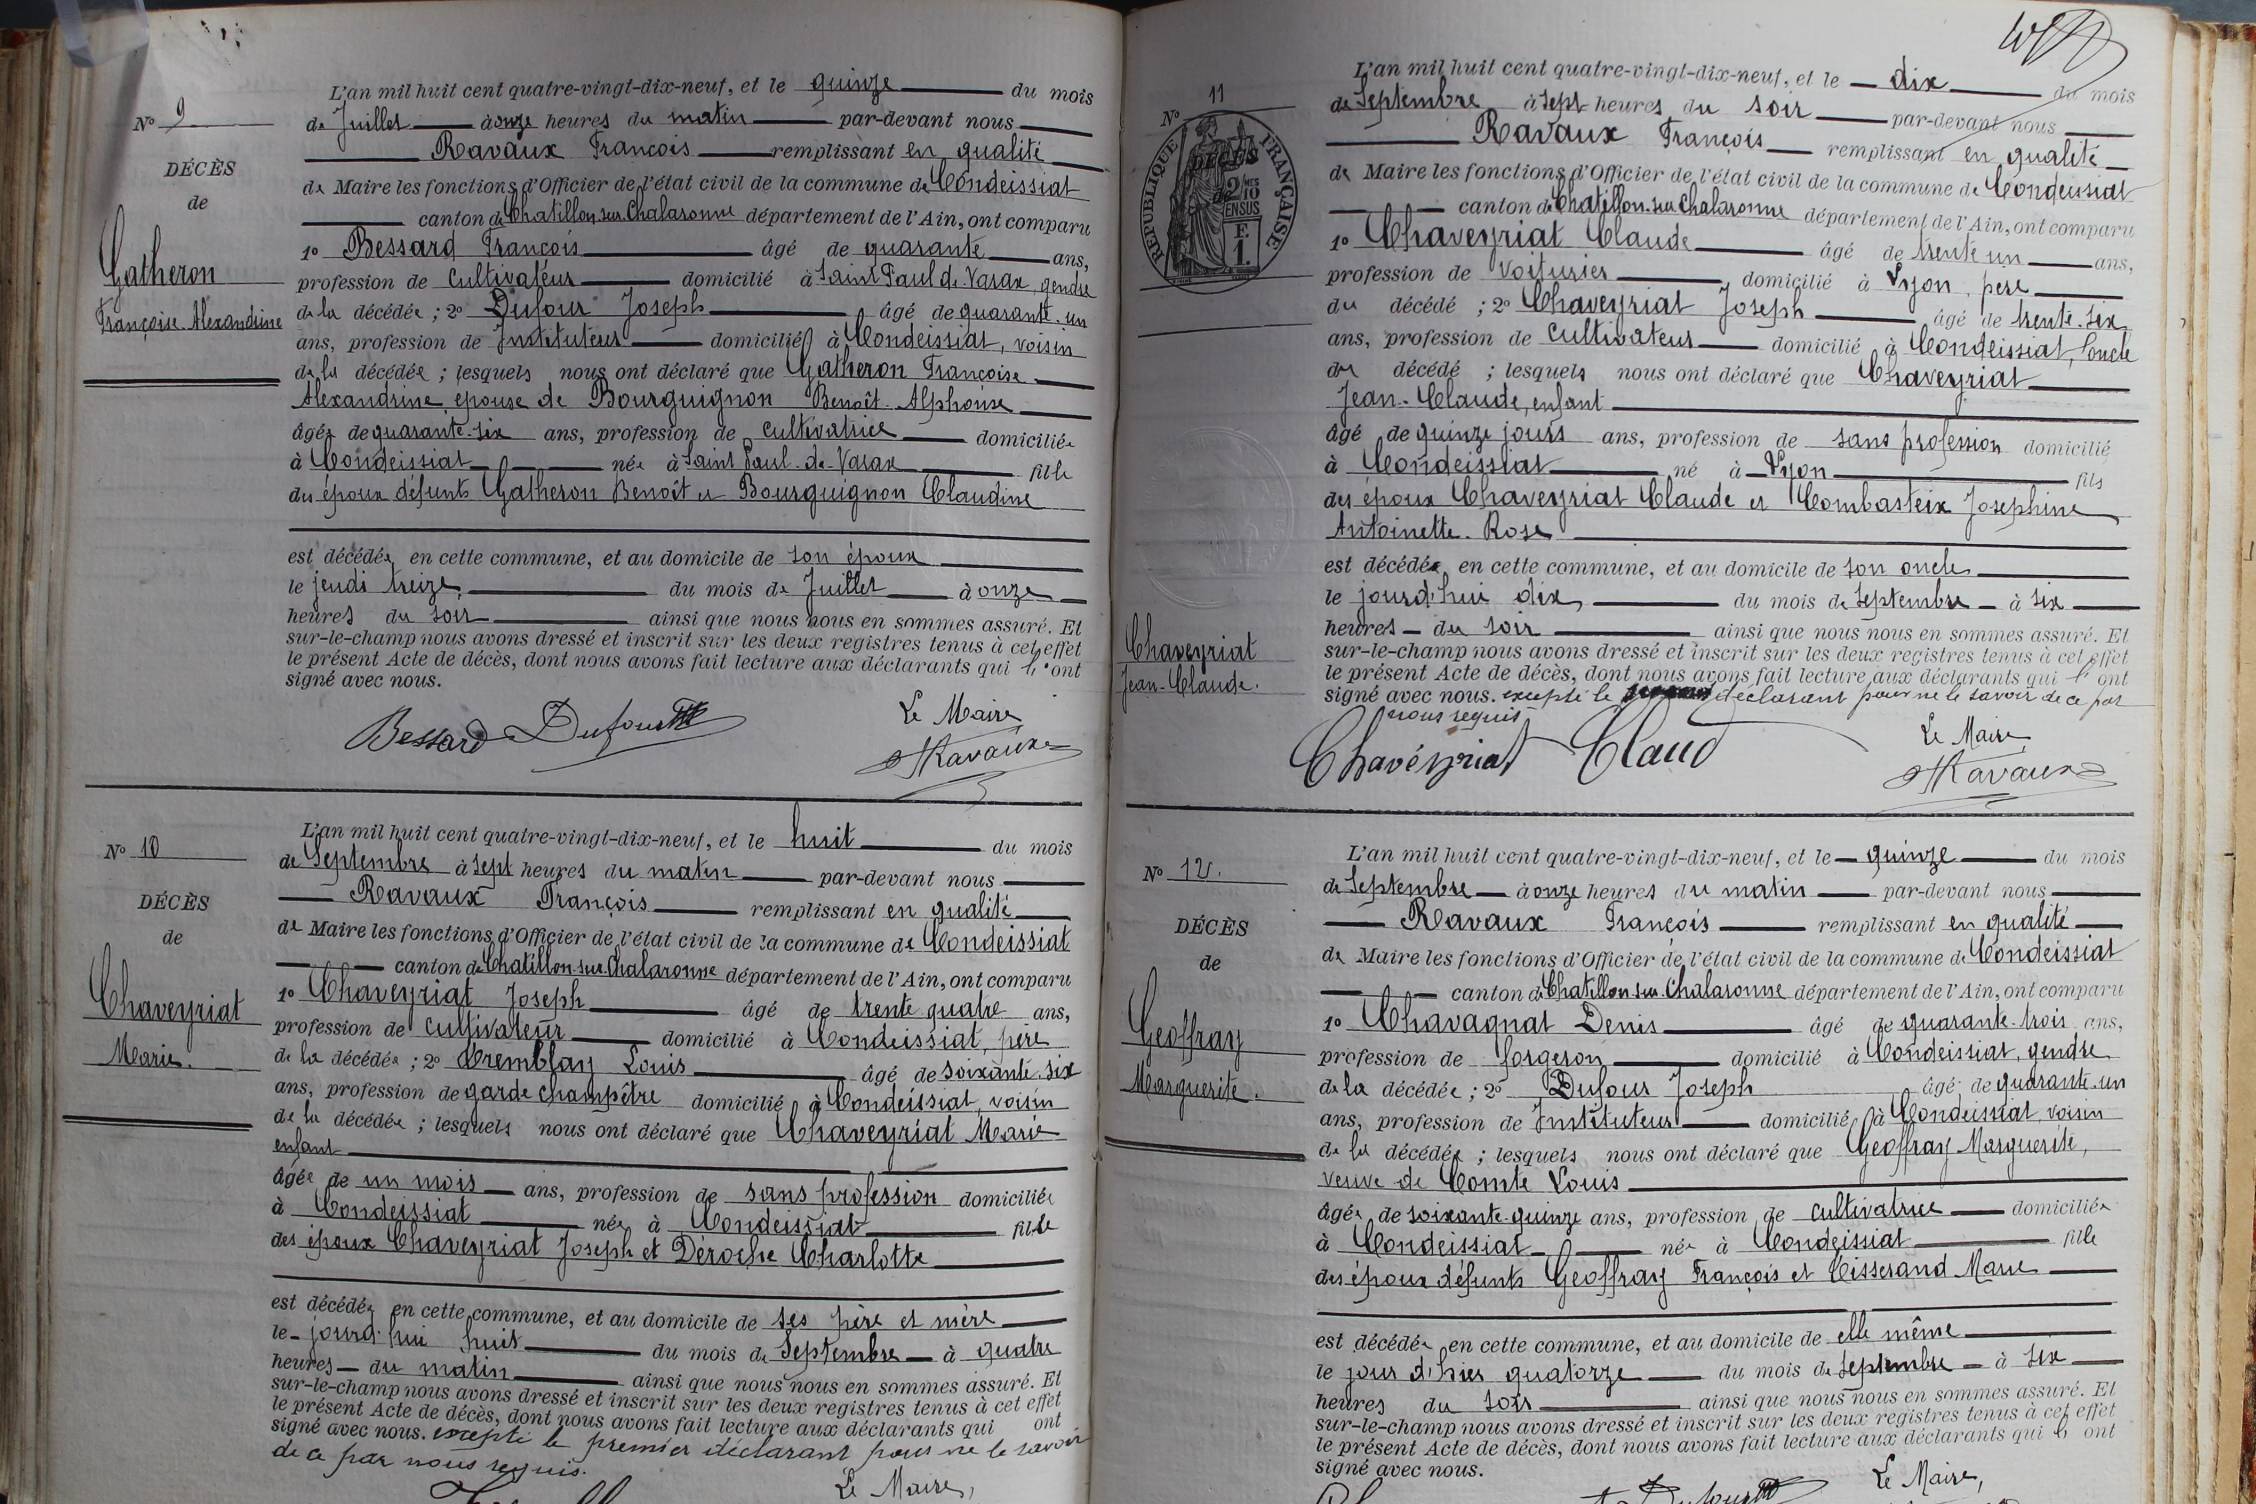 L'an mil huit cent quatre-vingt-dix-neuf, et le quinze du mois
No 9
de Juillet à onze heures du matin par-devant nous
Ravaux François remplissant en qualité
DÉCÈS
de Maire les fonctions d'Officier de l'état civil de la commune de Condeissiat
de
canton de Chatillon-sur-Chalaronne département de l'Ain, ont comparu
Gatheron
Françoise Alexandrine
1o Bessard François âgé de quarante ans,
profession de cultivateur domicilié à Saint Paul-de-Varax, gendre
de la décédée ; 2o Dufour Joseph âgé de quarante-un
ans, profession de Instituteur domicilié à Condeissiat, voisin
de la décédée ; lesquels nous ont déclaré que Gatheron Françoise
Alexandrine, épouse de Bourguignon Benoît-Alphonse
âgée de quarante-six ans, profession de cultivatrice domiciliée
à Condeissiat née à Saint Paul-de-Varax fille
des époux défunts Gatheron Benoît et Bourguignon Claudine
est décédée en cette commune, et au domicile de son époux
le jeudi treize, du mois de Juillet à onze
heures du soir ainsi que nous nous en sommes assuré. Et
sur-le-champ nous avons dressé et inscrit sur les deux registres tenus à cet effet
le présent Acte de décès, dont nous avons fait lecture aux déclarants qui l'ont
signé avec nous.
Le Maire
Bessard Dufour
Ravaux
L'an mil huit cent quatre-vingt-dix-neuf, et le huit du mois
No 10
de Septembre à sept heures du matin par-devant nous
Ravaux François remplissant en qualité
DÉCÈS
de Maire les fonctions d'Officier de l'état civil de la commune de Condeissiat
de
canton de Chatillon-sur-Chalaronne département de l'Ain, ont comparu
Chaveyriat
Marie.
1o Chaveyriat Joseph âgé de trente quatre ans,
profession de cultivateur domicilié à Condeissiat, père
de la décédée ; 2o Tremblay Louis âgé de soixante-six
ans, profession de garde champêtre domicilié à Condeissiat, voisin
de la décédée ; lesquels nous ont déclaré que Chaveyriat Marie
enfant
âgée de un mois ans, profession de sans profession domiciliée
à Condeissiat née à Condeissiat fille
des époux Chaveyriat Joseph et Déroche Charlotte
est décédée en cette commune, et au domicile de ses père et mère
le jourd'hui huit du mois de Septembre à quatre
heures du matin ainsi que nous nous en sommes assuré. Et
sur-le-champ nous avons dressé et inscrit sur les deux registres tenus à cet effet
le présent Acte de décès, dont nous avons fait lecture aux déclarants qui ont
signé avec nous. excepté le premier déclarant pour ne le savoir
de ce par nous requis.
Le Maire,
L'an mil huit cent quatre-vingt-dix-neuf, et le dix du mois
No 11
de Septembre à sept heures du soir par-devant nous
Ravaux François remplissant en qualité
RÉPUBLIQUE FRANÇAISE
DÉCÈS
de
2/10MES
EN SUS
F.
1.
de Maire les fonctions d'Officier de l'état civil de la commune de Condeissiat
canton de Chatillon-sur-Chalaronne département de l'Ain, ont comparu
1o Chaveyriat Claude âgé de trente un ans,
profession de voiturier domicilié à Lyon, père
du décédé ; 2o Chaveyriat Joseph âgé de trente-six
ans, profession de cultivateur domicilié à Condeissiat, oncle
du décédé ; lesquels nous ont déclaré que Chaveyriat
Jean-Claude, enfant
âgé de quinze jours ans, profession de sans profession domicilié
à Condeissiat né à Lyon fils
des époux Chaveyriat Claude et Combasteix Josephine
Antoinette-Rose
est décédée en cette commune, et au domicile de son oncle
le jourd'hui dix, du mois de Septembre à six
heures du soir ainsi que nous nous en sommes assuré. Et
Chaveyriat
Jean-Claude.
sur-le-champ nous avons dressé et inscrit sur les deux registres tenus à cet effet
le présent Acte de décès, dont nous avons fait lecture aux déclarants qui l'ont
signé avec nous. excepté le déclarant pour ne le savoir de ce par
nous requis
Le Maire,
Chavéyriat Claud
Ravaux
L'an mil huit cent quatre-vingt-dix-neuf, et le quinze du mois
No 12.
de Septembre à onze heures du matin par-devant nous
Ravaux François remplissant en qualité
DÉCÈS
de Maire les fonctions d'Officier de l'état civil de la commune de Condeissiat
de
canton de Chatillon-sur-Chalaronne département de l'Ain, ont comparu
Geoffray
Marguerite.
1o Chavagnat Denis âgé de quarante-trois ans,
profession de forgeron domicilié à Condeissiat, gendre
de la décédée ; 2o Dufour Joseph âgé de quarante-un
ans, profession de Instituteur domicilié à Condeissiat, voisin
de la décédée ; lesquels nous ont déclaré que Geoffray Marguerite,
veuve de Comte Louis
âgée de soixante-quinze ans, profession de cultivatrice domiciliée
à Condeissiat née à Condeissiat fille
des époux défunts Geoffray François et Tisserand Marie
est décédée en cette commune, et au domicile de elle même
le jour d'hier quatorze du mois de Septembre à six
heures du soir ainsi que nous nous en sommes assuré. Et
sur-le-champ nous avons dressé et inscrit sur les deux registres tenus à cet effet
le présent Acte de décès, dont nous avons fait lecture aux déclarants qui l'ont
signé avec nous.
Le Maire,
Dufour